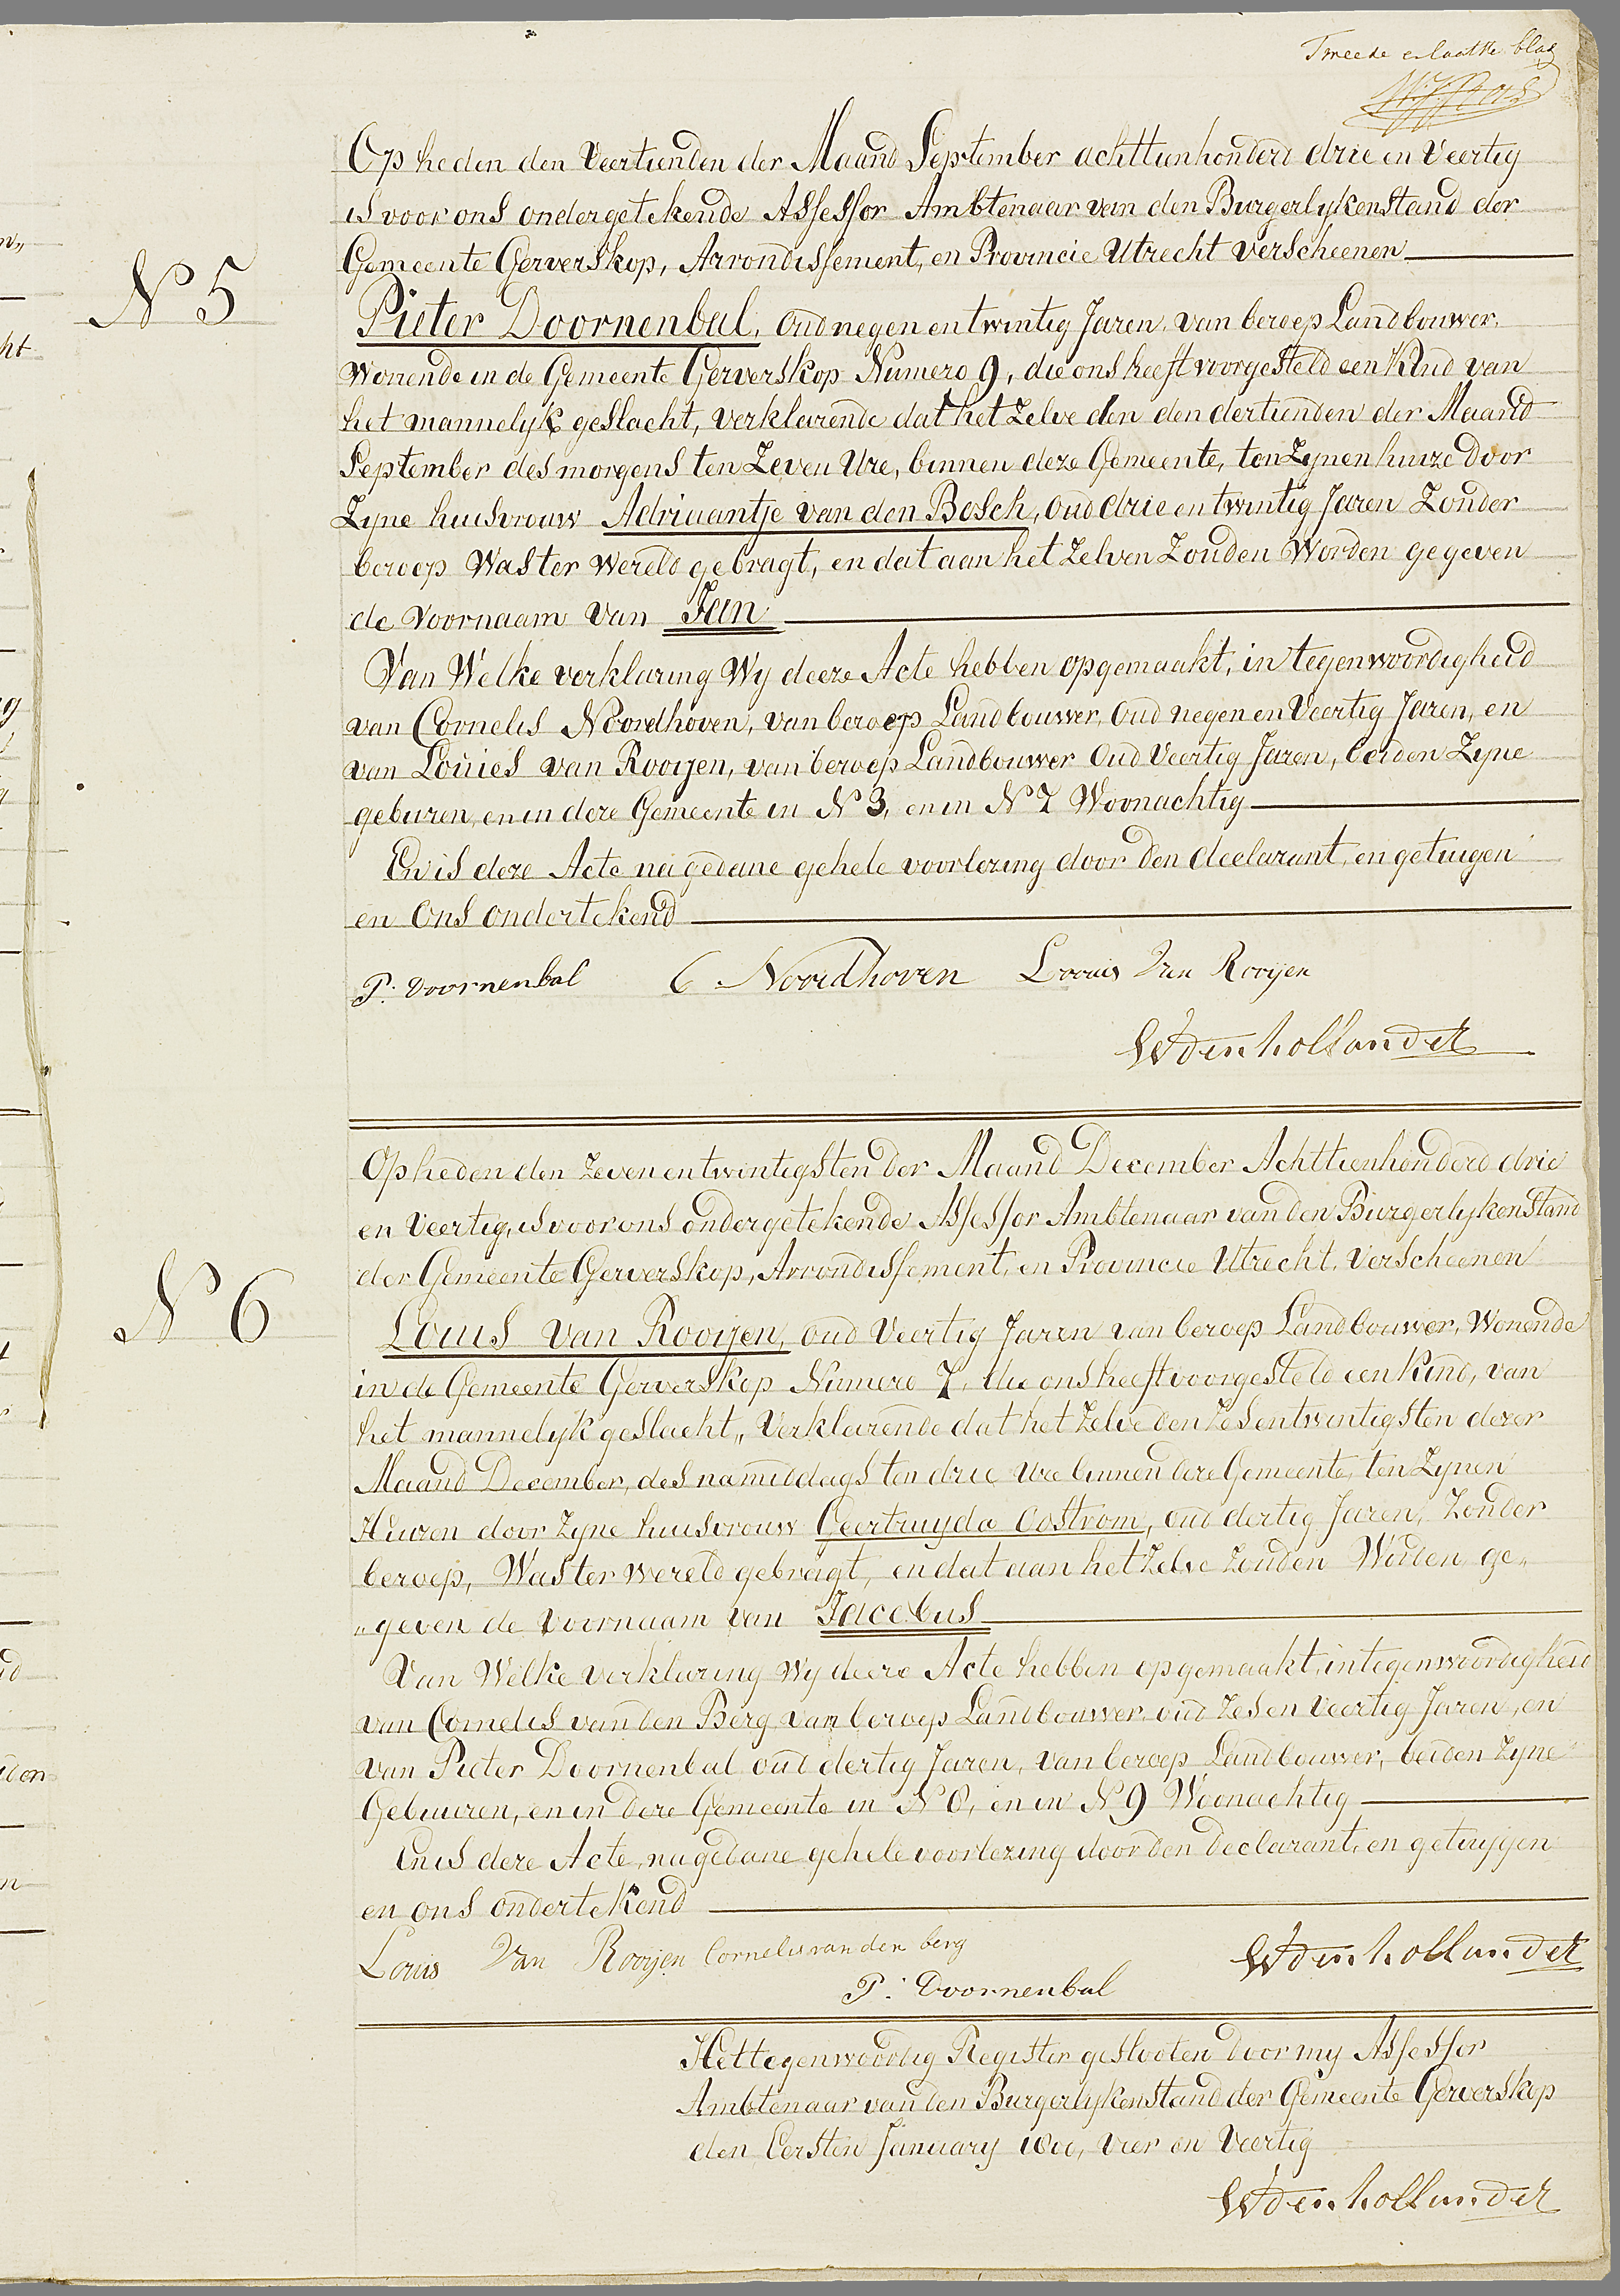 Tweede en laatste blad
Op heden den Veertienden der Maand September achttienhonderd drie en Veertig
is voor ons ondergetekende Assessor Ambtenaar van den Burgerlykenstand der
Gemeente Gerverskop, Arrondissement, en Provincie Utrecht verscheenen
N 5
Pieter Doornenbal, oud negen en twintig Jaren, van beroep Landbouwer,
Wonende in de Gemeente Gerverskop Numero 9, die ons heeft voorgesteld een Kind van
het mannelyk geslacht, verklarende dat het Zelve den den dertienden der Maand
September des morgens ten Zeven Ure, binnen deze Gemeente, ten Zynen huize door
Zyne huisvrouw Adriaantje van den Bosch, oud drie en twintig Jaren Zonder
beroep Was ter Wereld gebragt, en dat aan het Zelven Zouden Worden gegeven
de Voornaam van Jan
Van Welke verklaring Wy deeze Acte hebben opgemaakt, in tegenwoordigheid
van Cornelis Noordhoven, van beroep Landbouwer, Oud negen en Veertig Jaren, en
van Louies van Rooyen, van beroep Landbouwer Oud Veertig Jaren, beiden Zyne
geburen, en in deze Gemeente in N 3, en in N 7 Woonachtig
En is deze Acte na gedane gehele voorlezing door den declarant, en getuigen
en Ons ondertekend
P. Doornenbal C Noordhoven Loouis Van Rooijen
W den hollander
Op heden den Zeven en twintigsten der Maand December Achttienhonderd drie
en Veertig, is voor ons ondergetekende Assessor Ambtenaar van den Burgerlykenstand
der Gemeente Gerverskop, Arrondissement, en Provincie Utrecht, Verscheenen
N 6
Louis van Rooyen, oud Veertig Jaren van beroep Landbouwer, Wonende
in de Gemeente Gerverskop Numero 7, die ons heeft voorgesteld een Kind, van
het mannelyk geslacht, Verklarende dat het Zelve den Zes en twintigsten dezer
Maand December, des namiddags ten drie Ure binnen deze Gemeente, ten Zynen
Huizen door Zyne huisvrouw Geertruyda Oostrom, oud dertig Jaren, Zonder
beroep, Was ter wereld gebragt, en dat aan het Zelve Zouden Worden ge„
„geven de Voornaam van Jacobus
Van Welke verklaring Wy deeze Acte hebben opgemaakt, in tegenwoordigheid
van Cornelis van den Berg van beroep Landbouwer, oud Zes en Veertig Jaren, en
van Pieter Doornenbal oud dertig Jaren, van beroep Landbouwer, beiden Zyne
Gebuuren, en in deze Gemeente in N 8, en in N 9 Woonachtig
En is deze Acte, na gedane gehele voorlezing door den declarant, en getuygen
en ons ondertekend
Louis Van Rooijen Cornelis van den berg W den hollander
P. Doornenbal
Het tegenwoordig Register geslooten door my Assessor
Ambtenaar van den Burgerlykenstand der Gemeente Gerverskop
den Eersten January 1800, vier en Veertig
W den hollander